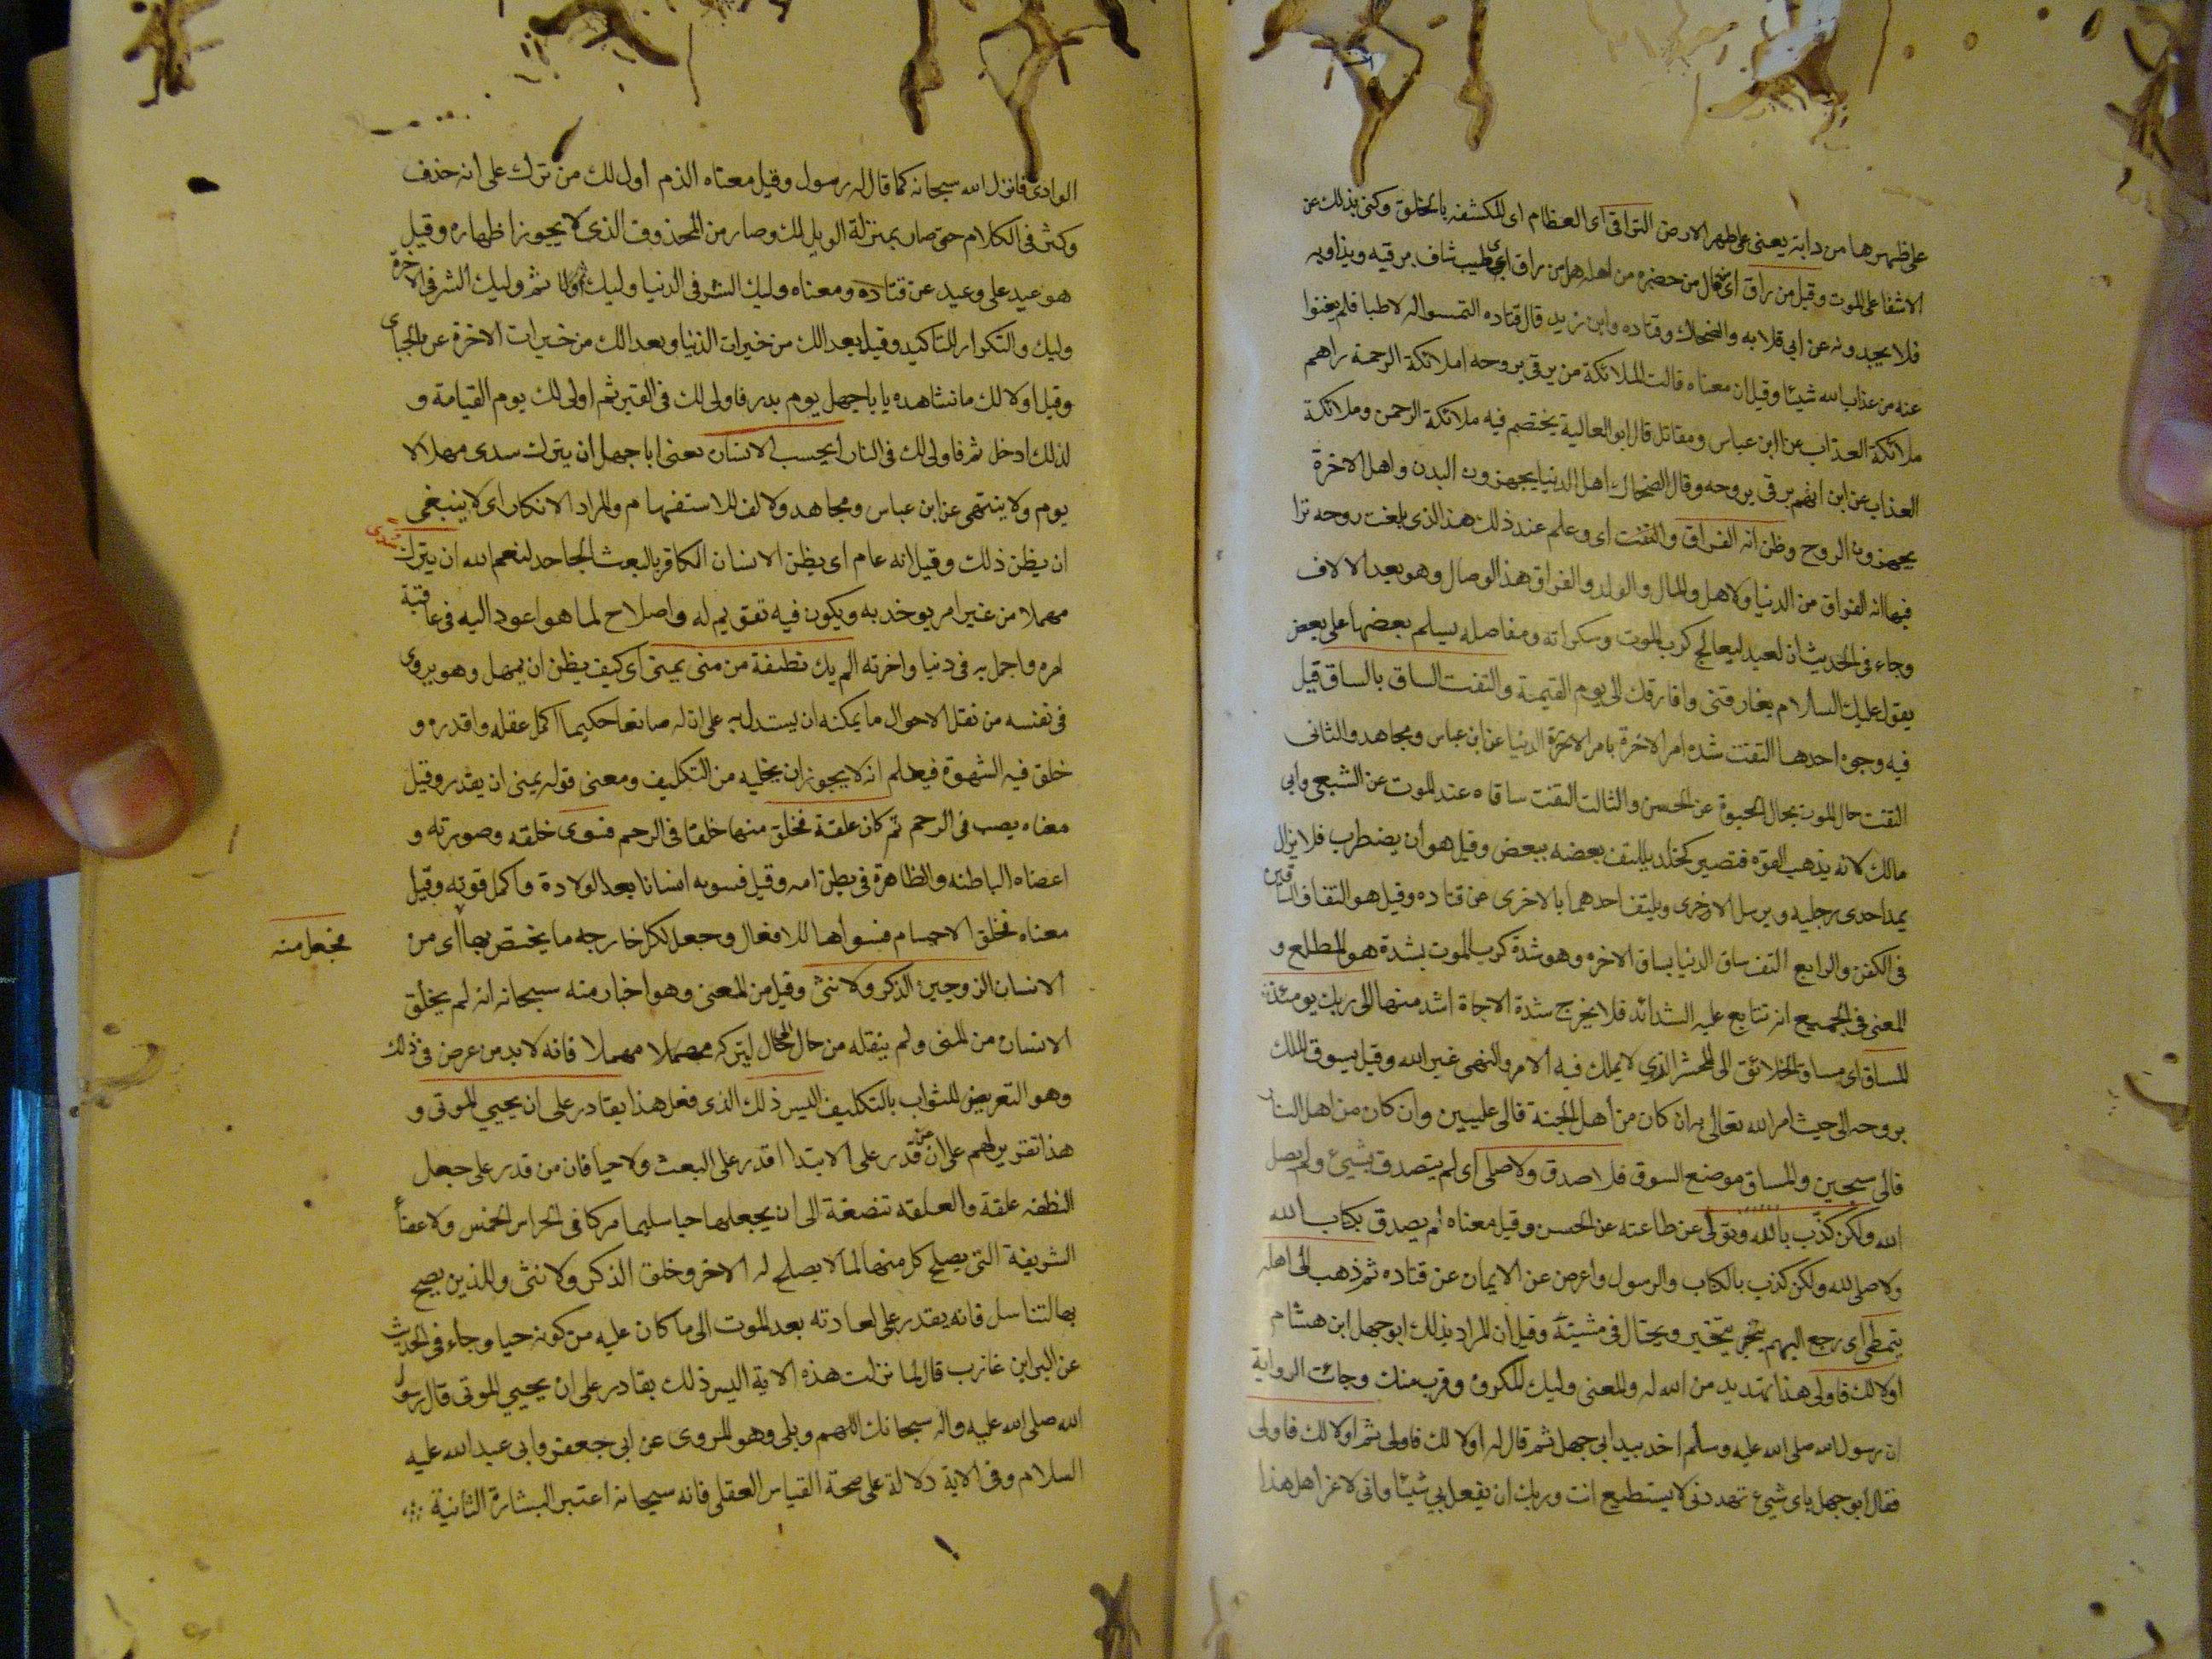 على ظهرها من دابة يعنى على ظهر الارض التراقى اى العظام اى المكشفه بالحلق وكنى بذلك عن
الاشفا على الموت وقيل من راق اى قال من حضره من اهله هل من راق اى طيب شاف يرقيه ويداويه
فلا يجدونه عن ابى قلابه والضحاك وقتاده وابن زيد قال قتاده التمسوا له لاطبا فلم يغنوا
عنه من عذاب الله شيئا وقيل ان معناه قالت الملائكة من يرقى بروحه املائكة الرحمة راهم
ملائكة العذاب عن ابن عباس ومقاتل قال ابو العالية يختصم فيه ملائكة الرحمن وملائكة
العذاب عن ابن ايهم يرقى بروحه وقال الضحاك اهل الدنيا يجهزون البدن واهل الاخرة
يجهزون الروح وظن انه الفراق والتفت اى وعلم عند ذلك هذا الذى بلغت روحه ترا
فيها انه الفراق من الدنيا ولاهل والمال والولد والفراق هذ الوصال وهو بعيد الالاف
وجاء فى الحديث ان لعبد ليعالج كرب الموت وسكراته ومفاصله يسلم بعضها على بعض
يقول عليك السلام يفارقنى وافارقك الى يوم القيمة والتفت الساق بالساق قيل
فيه وجوه احدها التفت شده امر الاخرة بامر الاخرة الدنيا عن ابن عباس ومجاهد والثانى
التفت حال الموت بحال الحيوة عن الحسن والثالث التفت ساقاه عند الموت عن الشعبى وابى
مالك لانه يذهب القوه فتصير كجلد يلتف بعضه ببعض وقيل هو أن يضطرب فلا يزال
يمد احدى رجليه ويرسل الاخرى ويلتف احدهما بالاخرى عن قتاده وقيل هو التفاف الساقين
فى الكفن والرابع التف ساق الدنيا بساق الاخره وهو شدة كرب الموت بشدة هو المطلع و
المعنى فى الجميع انه تتابع عليه الشدائد فلا يخرج شدة الاجاة اشد منها الى ربك يومئذ
المساق اى مساق الخلائق الى المحشر الذي لا يملك فيه الامر والنهى غير الله وقيل يسوق الملك
بروحه الى حيث امر الله تعالى به ان كان من أهل الجنة فالى عليين وان كان من اهل النار
فالى سجين والمساق موضع السوق فلا صدق ولا صلى اى لم يتصدق بشيء ولم يصل
الله ولكن كذّب بالله وتولى عن طاعته عن الحسن وقيل معناه لم يصدق بكتاب الله
ولا صلى لله ولكن كذب بالكتاب والرسول واعرض عن الايمان عن قتاده ثم ذهب الى اهله
يتمطى اى رجع اليهم يتبختر ويختال فى مشيته وقيل أن المراد بذلك ابو جهل ابن هشام
اولا لك فاولى هذا تهديد من الله له والمعنى وليك المكروه وقرب منك وجائت الرواية
ان رسول الله صلى الله عليه وسلم اخد بيد ابى جهل ثم قال له اولا لك فاولى ثم اولا لك فاولى
فقال ابو جهل باى شيء تهددنى لا يستطيع انت وربك ان يفعل بى شيئا وانى لاعز اهل هذا
الوادى فانزل الله سبحانه كما قال له رسول وقيل معناه الذم اول لك من ترك على انه حذف
وكثر فى الكلام حتى صار بمنزلة الويل لك وصار من المحذوف الذى لا يجوز اظهاره وقيل
هو عيد على وعيد عن قتاده ومعناه وليك الشر فى الدنيا وليك ثم وليك الشر فى الاخرة
وليك والتكرار للتاكيد وقيل بعد الك من خيرات الدنيا وبعد الك من خيرات الاخرة عن الجباى
وقيل اولا لك ما تشاهده يا باجهل يوم بدر فاولى لك فى القبر ثم اولى لك يوم القيامة و
لذلك ادخل ثم فاولى لك فى النار ايحسب الانسان يعنى ابا جهل ان يترك سدى مهلا لا
يوم ولا ينتهى عن ابن عباس ومجاهد ولالف للاستفهام والمراد الانكار اى لا ينبغى
ان يظن ذلك وقيل انه عام اى يظن الانسان الكافر بالبعث الجاحد لنعم الله ان يترك سدى
مهملا من غير امر يوخد به ويكون فيه تقويم له واصلاح لما هو اعود اليه فى عاقبة
امره واجمل به فى دنيا واخرته الم يك نطفة من منى يمنى اى كيف يظن ان يهمل وهو يروى
فى نفسه من نقل الاحوال ما يمكنه ان يستدل به على ان له صانعا حكيما اكمل عقله واقدره و
خلق فيه الشهوة فيعلم انه لا يجوز ان يخليه من التكليف ومعنى قوله يمنى ان يقدر وقيل
معناه يصب فى الرحم ثم كان علقة فخلق منها خلقا فى الرحم فسوى خلقه وصورته و
اعضاه الباطنه والظاهرة فى بطن امه وقيل فسويه انسانا بعد الولادة واكمل قوته وقيل
معناه فخلق الاجسام فسواها للافعال وجعل لكل خارجه ما يختص بها اى من
فجعل منه
الانسان الزوجين الذكر ولانثى وقيل من المعنى وهو اخبار منه سبحانه انه لم يخلق
الانسان من المنى ولم ينقله من حال الحال ليتركه مهملا فانه لابد من عرض فى ذلك
وهو التعريض للثواب بالتكليف اليس ذلك الذى فعل هذا بقادر على ان يحيي الموتى و
هذا تقرير لهم على ان من قدر على الابتدا اقدر على البعث ولاحيا فان من قدر على جعل
النطفه علقة والعلقه تضغة الى ان يجعلها حيا سليما مركبا فى الحراس الخمس ولاعضأ
الشريفة التى يصلح كل منها لما لا يصلح له الاخر وخلق الذكر ولانثى والذين يصح
بها لتناسل فانه يقدر على لعادته بعد الموت الى ما كان عليه من كونه حيا وجاء فى الحديث
عن البرا بن عازب قال لما نزلت هذه الاية اليس ذلك بقادر على ان يحيي الموتى قال رسول
الله صلى الله عليه واله سبحانك اللهم وبلى وهو المروى عن ابى جعفر وابى عبد الله عليه
السلام وفى الاية دلالة على صحة القياس العقلى فانه سبحانه اعتبر البشارة الثانية